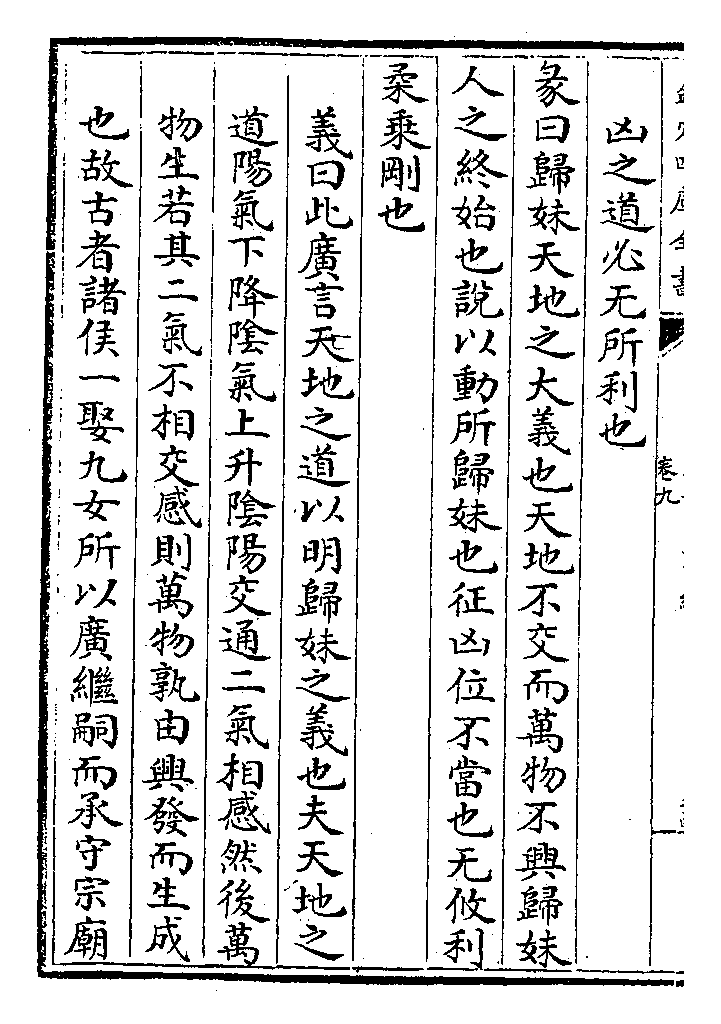 凶之道必无所利也
彖曰歸妹天地之大義也天地不交而萬物不興歸妹
人之終始也説以動所歸妹也征凶位不當也无攸利
柔乗剛也
義曰此廣言天地之道以明歸妹之義也夫天地之
道陽氣下降陰氣上升陰陽交通二氣相感然後萬
物生若其二氣不相交感則萬物孰由興發而生成
也故古者諸侯一娶九女所以廣繼嗣而承守宗廟
卷九